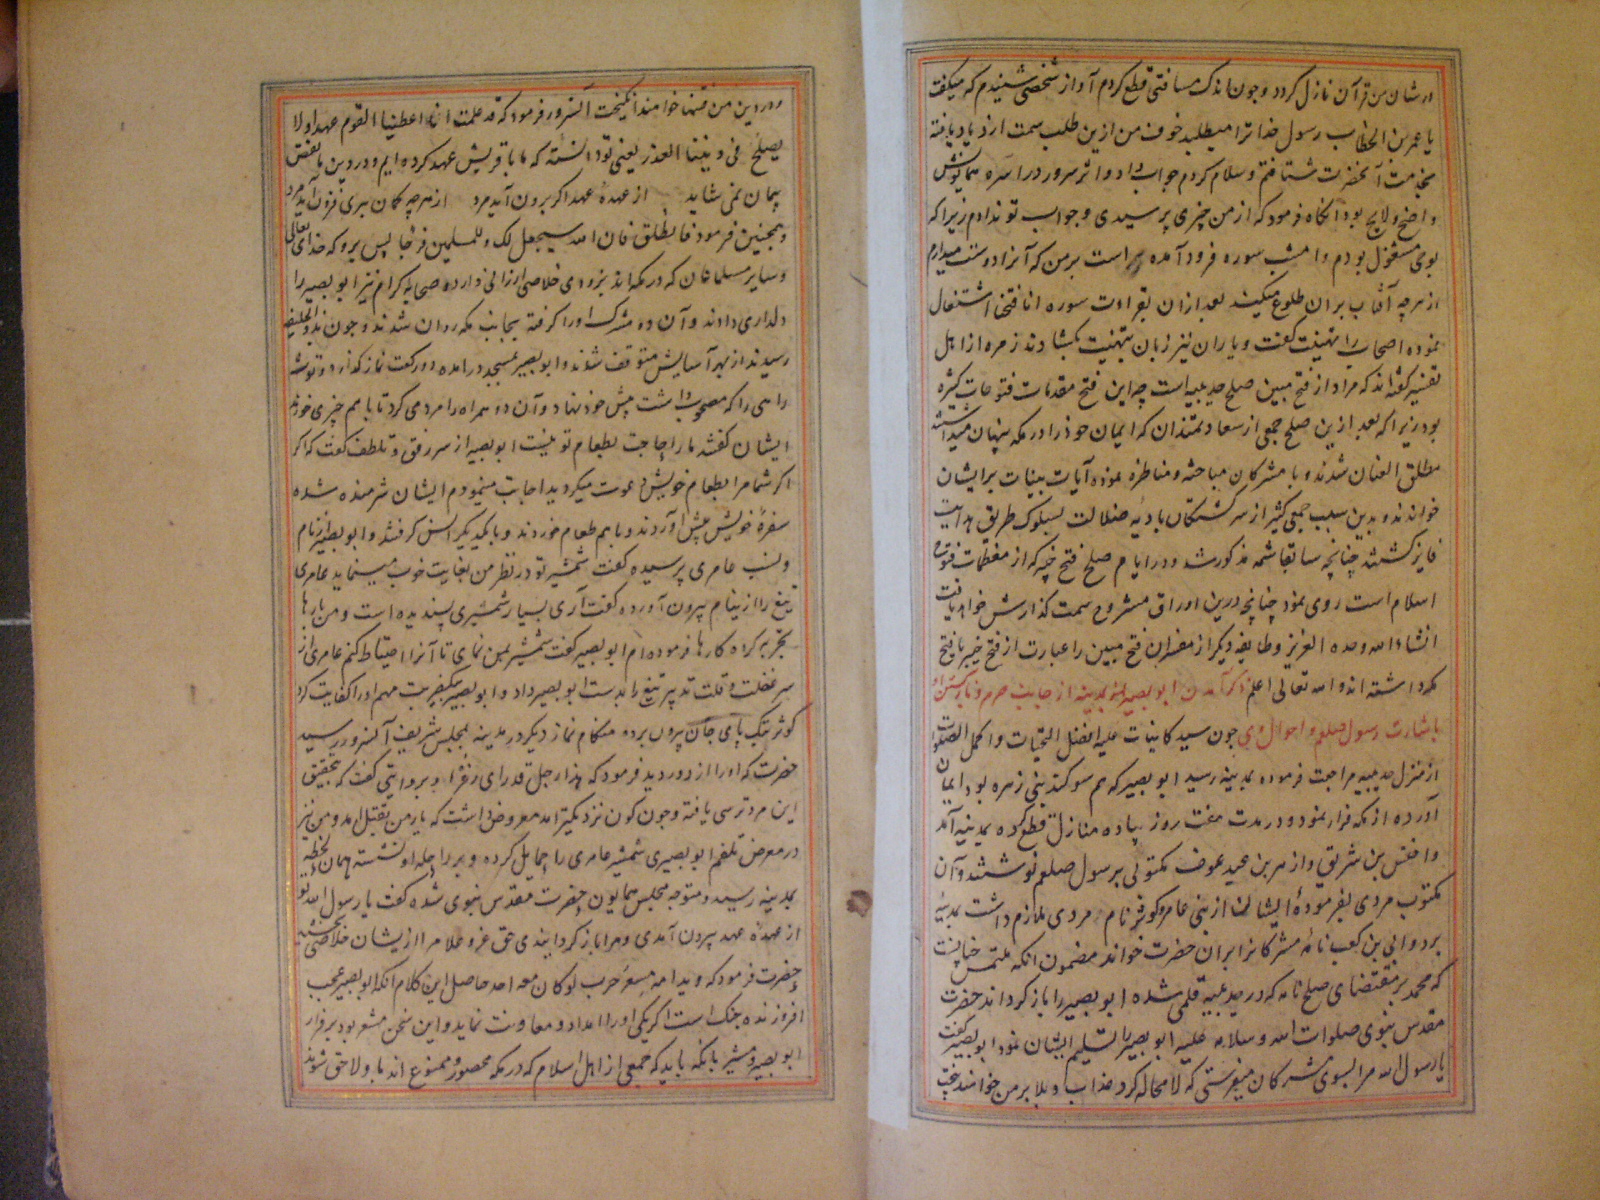 در شان من قرآن نازل کردد و چون اندک مسافتی قطع کردم آواز شخصی شنیدم که میکفت
یا عمر بن الخطاب رسول خدا ترا میطلبد خوف من ازین طلب سمت ازدیاد یافته
بخدمت آنحضرت شتافتم و سلام کردم جواب داد و اثر سرور در اسره همایونش
واضح و لایح بود آنکاه فرمود که از من چیزی پرسیدی و جواب تو ندادم زیرا که
بوی مشغول بودم و امشب سوره فرود آمده است بر من که آنرا دوست میدارم
از هرچه آفتاب بران طلوع میکند بعد ازان بقراءت سوره انا فتحنا اشتغال
نموده اصحاب را تهنیت کفت و یاران نیز زبان بتهنیت بکشادند زمره از اهل
تفسیر کفته‌اند که مراد از فتح مبین صلح حدیبیه است چه این فتح مقدمات فتوحات کثیره
بود زیرا که بعد ازین صلح جمعی از سعادتمندان که ایمان خود را در مکه پنهان میداشتند
مطلق العنان شدند و با مشرکان مباحثه و مناظره نموده آیات بینات بر ایشان
خواندند و بدین سبب جمعی کثیر از سرکشتکان بادیه ضلالت بسلوک طریق هدایت
فایز کشتند چنانچه سابقا شمه مذکور شد و در ایام صلح فتح خیبر که از معظمات فتوح
اسلام است روی نمود چنانچه درین اوراق مشروح سمت کذارش خواهد یافت
انشاءالله وحده العزیز و طایفه دیکر از مفسران فتح مبین را عبارت از فتح خیبر یا فتح
مکه داشته‌اند والله تعالی اعلم ذکر آمدن ابو بصیر بمدینه از جانب حرم و باز کشتن او
باشارت رسول صلعم و احوال وی چون سید کاینات علیه افضل التحیات و اکمل الصلوات
از منزل حدیبیه مراجعت فرموده بمدینه رسید ابو بصیر که هم سوکند بنی زهره بود ایمان
آورده از مکه فرار نمود و در مدت هفت روز پیاده منازل قطع کرده بمدینه آمد
و اخنس بن شریق و ازهر بن عبد عوف مکتوبی برسول صلعم نوشتند و آن
مکتوب مردی بفرموده ایشان از بنی عامر و کوثر نام مردی ملازم داشت بمدینه
برد و ابی بن کعب نامه مشرکانرا بران حضرت خواند مضمون آنکه ملتمس چنانست
که محمد بر مقتضای صلح نامه که در حدیبیه قلمی شده ابو بصیر را باز کرداند حضرت
مقدس نبوی صلوات الله و سلامه علیه ابو بصیر را تسلیم ایشان نمود ابو بصیر کفت
یا رسول الله مرا بسوی مشرکان میفرستی که لا محاله کرد عذاب و بلا بر من خواهند بیخت
و در دین من فتنها خواهند انکیخت آنسرور فرمود که قد علمت انا اعطینا القوم عهدا و لا
یصلح فی دیننا الغدر یعنی تو دانسته که ما با قریش عهد کرده‌ایم و در دین ما نقض
پیمان نمی شاید از عهده عهد اکر برون آید مرد از هرچه کمان بری فزون آید مرد
و همچنین فرمود فانطلق فان الله سیجعل لک و للمسلمین فرجا پس برو که خدای تعالی
و سایر مسلمانان که در مکه‌اند بزودی خلاصی ارزانی دارد و صحابه کرام نیز ابو بصیر را
دلداری دادند و آن دو مشرک او را کرفته بجانب مکه روان شدند و چون بذو الحلیفه
رسیدند از بهر آسایش متوقف شدند و ابو بصیر بمسجد درآمده دو رکعت نماز کذارد و توشه
راهی را که مصحوب داشت پیش خود نهاد و آن دو همراه را مردمی کرد تا با هم چیزی خورند
ایشان کفتند ما را حاجت بطعام تو نیست ابو بصیر از سر رفق و تلطف کفت که اکر
اکر شما مرا بطعام خویش دعوت میکردید اجابت مینمودم ایشان شرمنده شده
سفره خویش پیش آوردند و با هم طعام خوردند و با یکدیکر انس کرفتند و ابو بصیر از نام
و نسب عامری پرسیده کفت شمشیر تو در نظر من بغایت خوب مینماید عامری
تیغ را از نیام بیرون آورده کفت آری بسیار شمشیری پسندیده است و من بارها
تجربه کرده کارها فرموده‌ام ابو بصیر کفت شمشیر بمن نمای تا آنرا احتیاط کنم عامری از
سر غفلت و قلت تدبیر تیغ را بدست ابو بصیر داد و ابو بصیر بیکضربت مهم او را کفایت کرد
کوثر بتک پای جان بیرون برده هنکام نماز دیکر در مدینه بمجلس شریف آنسرور رسید
حضرت که او را از دور دید فرمود که هذا رجل قد رای ذعرا و بروایتی کفت که بتحقیق
این مرد ترسی یافته و چون کوثر نزدیکتر آمد معروض داشت که یار من بقتل آمد و من نیز
در معرض تلفم ابو بصیر شمشیر عامری را حمایل کرده و بر راحله او نشسته همان لحظه
بمدینه رسید و متوجه مجلس همایون حضرت مقدس نبوی شده کفت یا رسول الله تو
از عهده عهد بیرون آمدی و مرا باز کردانیدی حق عز و علا مرا از ایشان خلاصی بخشید
حضرت فرمود که ویل امه مسعر حرب لو کان معه احد حاصل این کلام آنکه ابو بصیر عجب
افروزنده جنک است اکر یکی او را امداد و معاونت نماید و این سخن مشعر بود بر فرار
ابو بصیر و مشیر بانکه باید که جمعی از اهل اسلام که در مکه محصور و ممنوع‌اند باو لاحق شوند